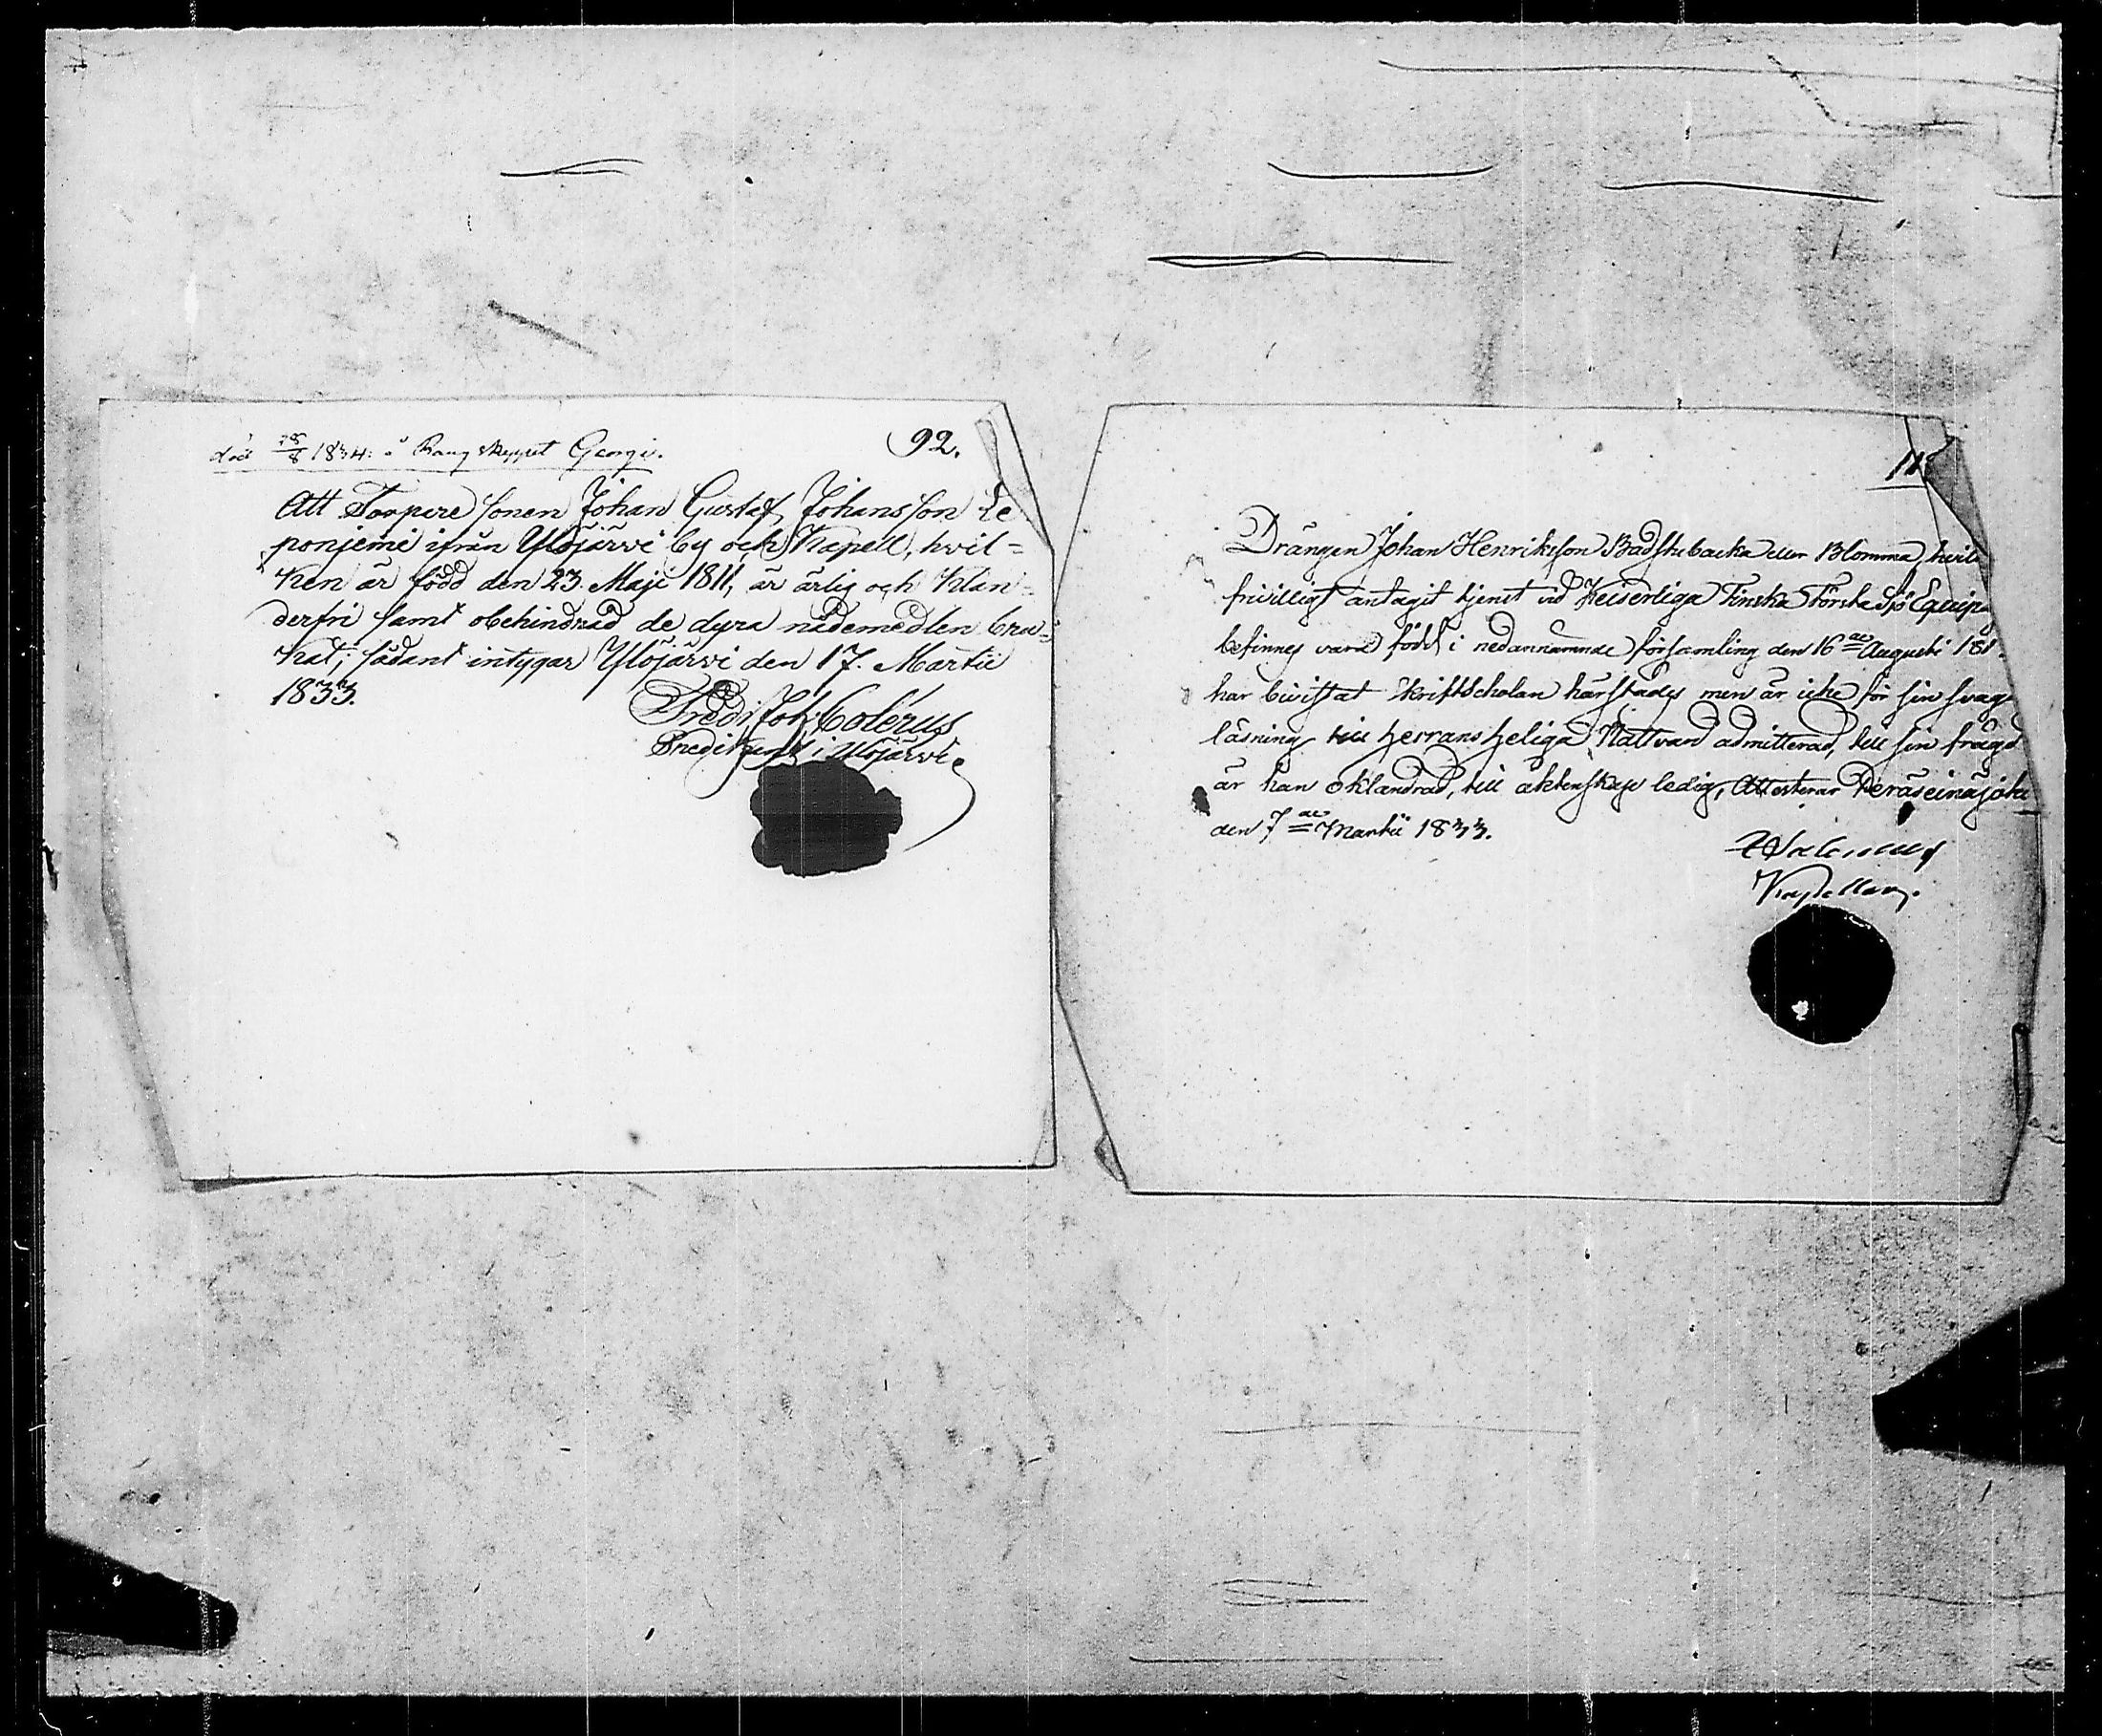 död 28/8 1834: å Rangskeppet Georgi.
92.
Att Torpare sonen Johan Gustaf Johansson Le
ponjemi ifrån Ylöjärvi by och Kapell, hvil=
ken är född den 23. Maji 1811, är ärlig och klan=
derfri samt obehindrad de dyra nådemedlen bru=
kat; sådant intygar Ylöjärvi den 17. Martii
1833.
Fredr Joh Colerus
Predikant i Ylöjärvi.
11
Drängen Johan Henriksson Badstubacka eller Blomma, hvil
frivilligt antagit tjenst vid Keiserliga Finska Första Sjö Equip
befinnes vara född i nedannämnde församling den 16de Augusti 181
har bivistat Skriftscholan härstädes men är icke för sin svag
läsning till Herrans Heliga Nattvard admitterad, till sin frägd
är han oklandrad, till äktenskap ledig, Attesterar Peräseinäjoki
den 7de Martii 1833.
Kapellan.